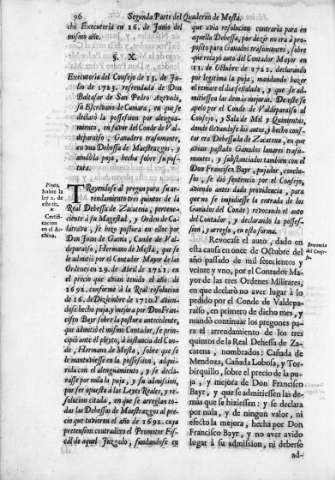 96 Segunda Parte del Quaderno de Mesta,
cha Executoria en 26. de Junio del
mismo año.
§. X.
Executoria del Consejo de 15. de Ju-
lio de 1723. refrendada de Don
Baltasar de San Pedro Azevedo,
Escrivano de Camara, en que se
declarò la possession por
en favor del Conde de Val-
deparaiso, Ganados trashumantes, en
una Dehessa de Maestrazgo,
la puja, hecha sobre su
Pinto,
Sobre la
ley 2. de
Certifi-
cacion
en el Ar-
chivo.
TRayendose al pregon para su ar-
rendamiento tres quintos de la
Real Dehessa de Zacatena, pertene-
ciente à su Magestad, y Orden de Ca-
latrava, se hizo postura en ellos por
Don Juan de Gaona, Conde de Val-
deparaiso, Hermano de Mesta, que se
le admitiò por el Contador Mayor de las
Ordenes en 29. de Abril de 1721. en
el precio que avian tenido el año de
1692. conforme à la Real resolucion
de 16. de Diziembre de 1720. Y avien-
dose hecho puja, y mejora por Don Fran-
cisco Bayr sobre la possession antecedente,
que admitiò el mismo Contador, se prin-
cipiò ante èl pleyto, à instancia del Con-
de, Hermano de Mesta, sobre que se
le mantuviesse en la possession, adqui-
rida con el alengamiento, y se decla-
rasse por nula la puja, y su admission,
por ser opuesta à las Leyes Reales, y re-
solucion citada, en que se arreglan to-
das las Dehessas de Maestrazgos al pre-
cio que tuvieron el año de 1692. cuya
pretension contradixo el Promotor Fis-
cal de aquel Juzgado, fundandose en
que avia resolucion contraria para en
aquella Dehessa, por dezir no era à pro-
posito para Ganados trashumantes, sobre
que recayò auto del Contador Mayor en
11. de Octubre de 1721. declarando
por legitima la puja, mandando hazer
el remate el dia señalado, y que se ad-
mitiessen las demàs mejoras. De este se
apelò por el Conde de Valdeparaiso al
Consejo, y Sala de Mil y Quinientas,
donde llevandose los autos, y hecho con-
star era Dehessa de Zacatena, en que
avian pastado Ganados lanares trashu-
mantes, y substanciados tambien con el
Don Francisco Bayr, pujador, conclu-
sos, se diò sentencia por el Consejo,
aviendo antes dado providencia, para
que no se impidiesse la entrada de los
Ganados del Conde; revocando el auto
del Contador, y declarando la possess-
sion, y arreglo, en esta forma.
Sentencia
del Conse-
jo.
Revocase el auto, dado en
esta causa en onze de Octubre del
año passado de mil setecientos y
veinte y uno, por el Contador Ma-
yor de las tres Ordenes Militares,
en que declarò no aver lugar à lo
pedido por el Conde de Valdepa-
raiso, en primero de dicho mes, y
mandò continuar los pregones pa-
ra el arrendamiento de los tres
quintos de la Real Dehessa de Za-
catena, nombrados; Cañada de
Mendoza, Cañada Lobosa, y Tor-
birquillo, sobre el precio de la pu-
ja, y mejora de Don Francisco
Bayr, y que se admitiessen las de-
màs que se hiziessen: y se declara
por nula, y de ningun valor, ni
efecto la mejora, hecha por Don
Francisco Bayr, y no aver avido
lugar à su admission, ni deberse
ad-